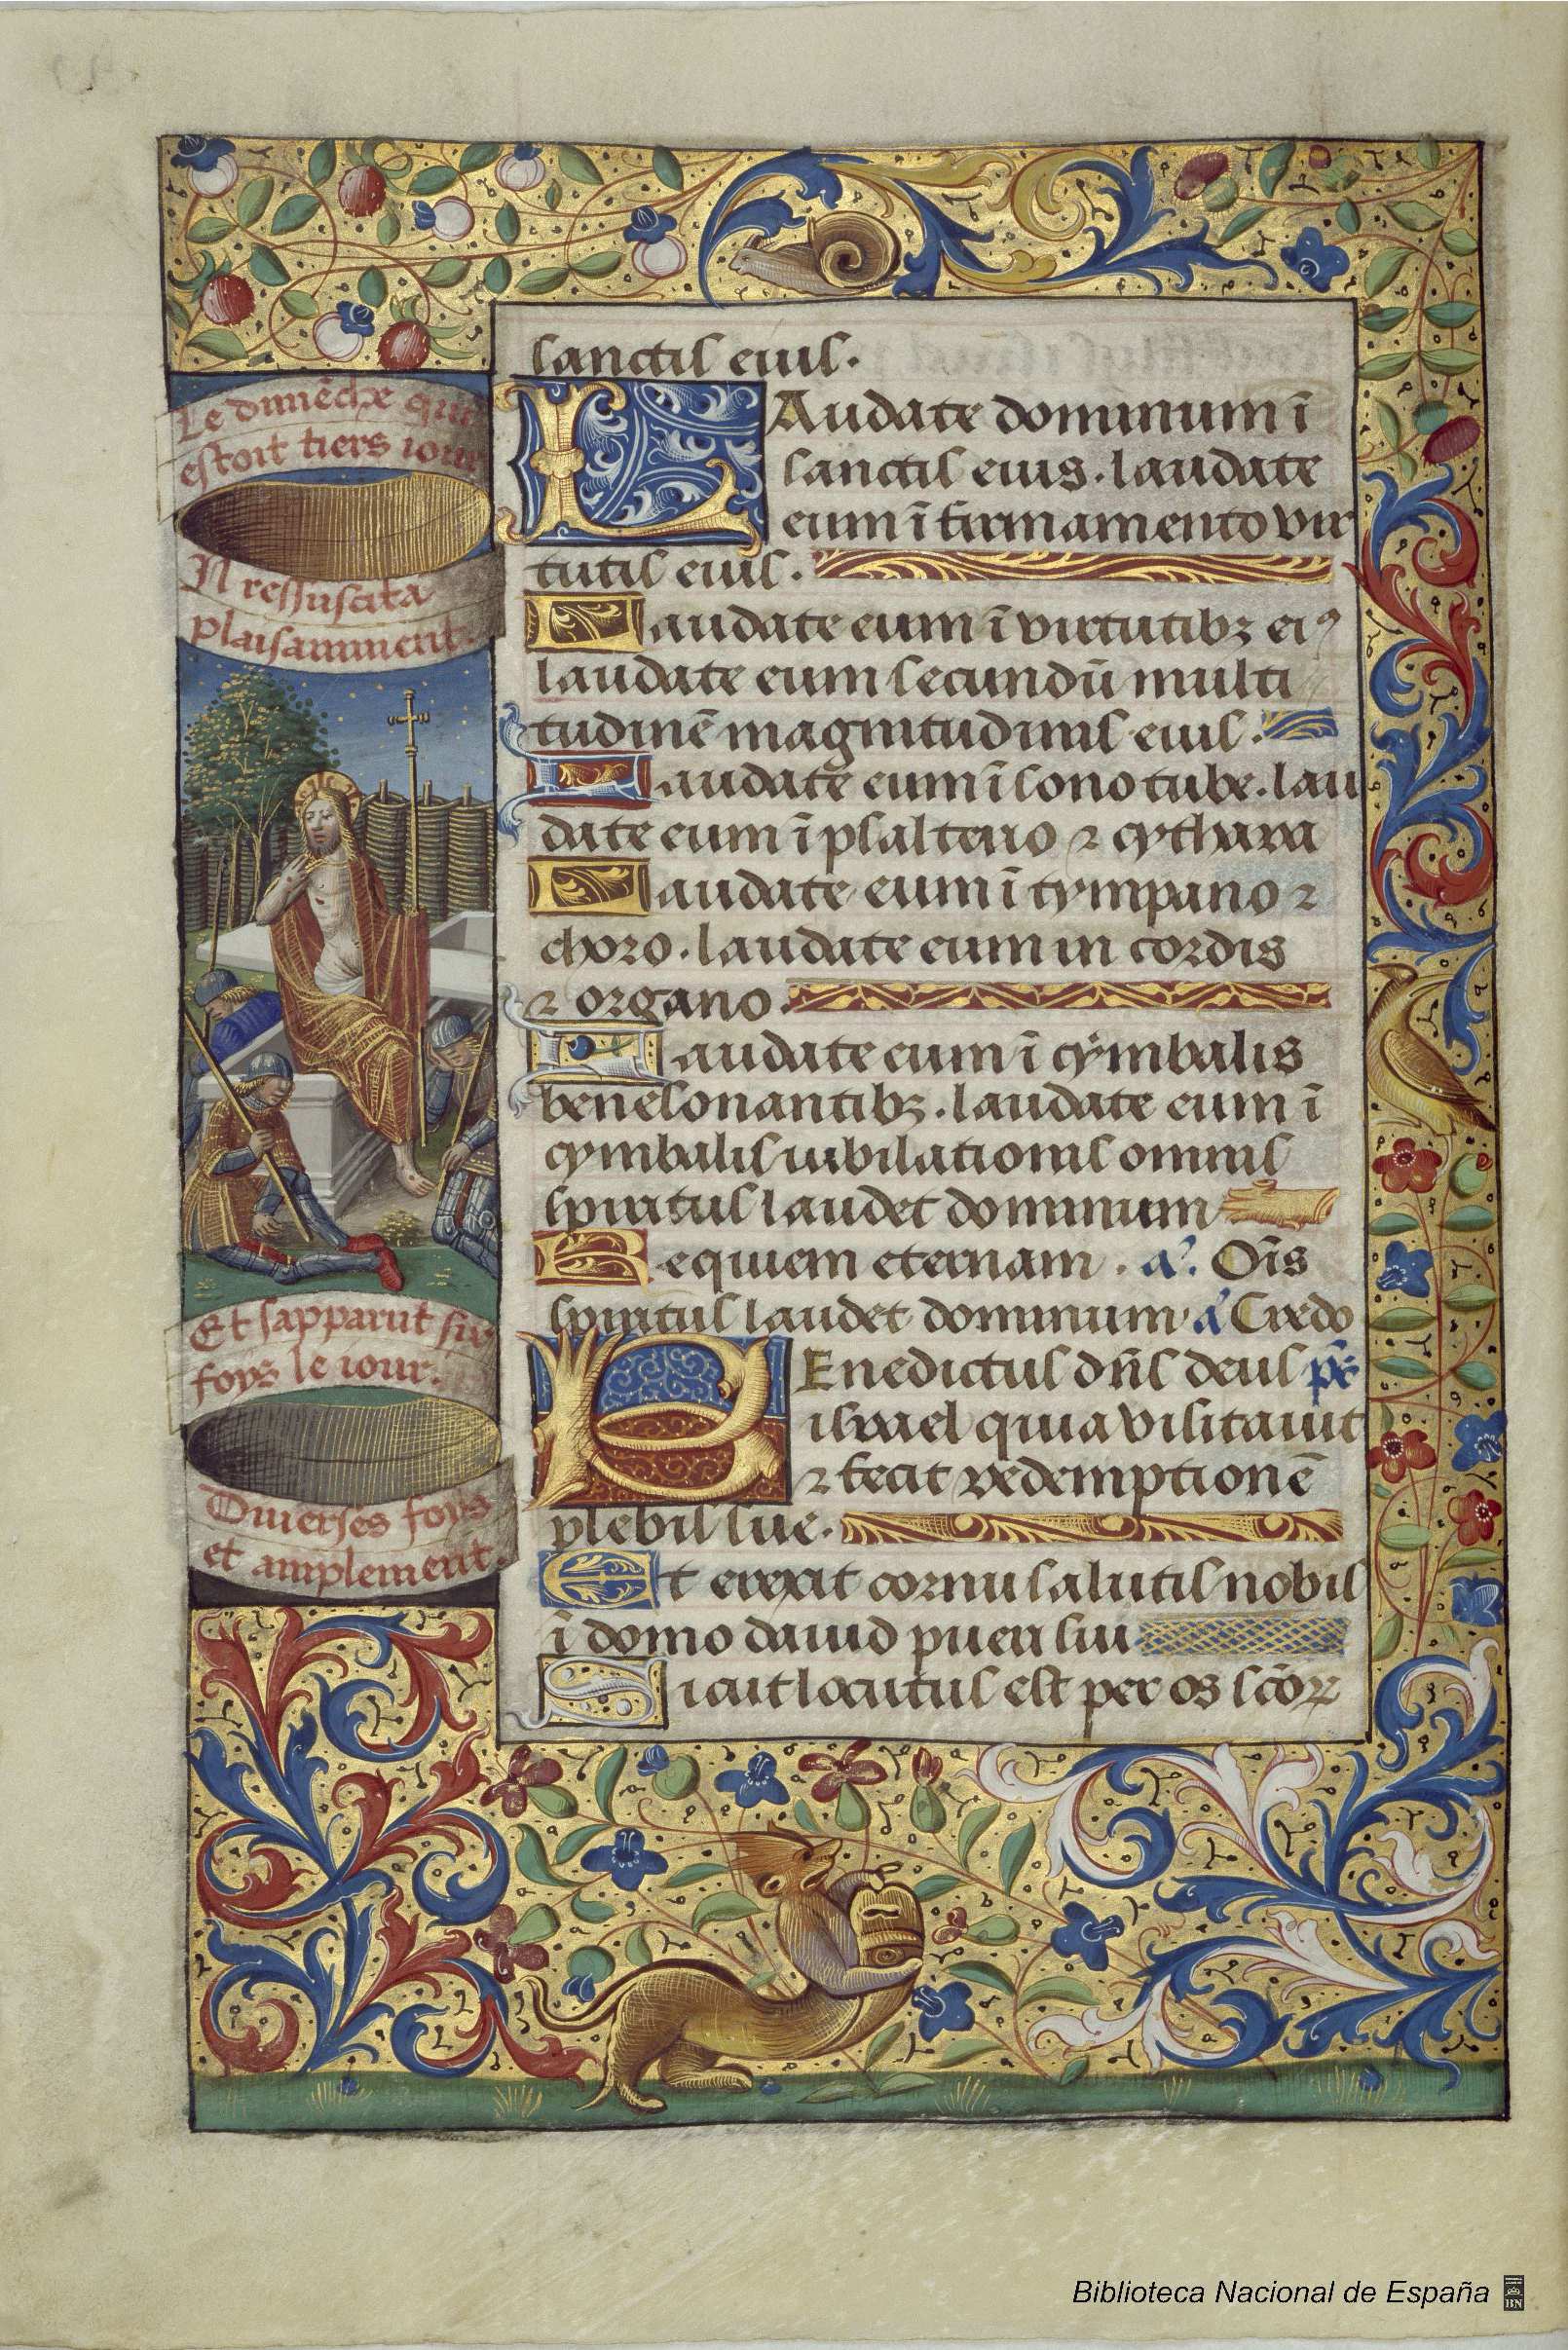 Le dimēche qui
estoit tiers iour
Il ressuscita
plaisamment.
Et sapparut six
foys le iour.
Diuerses foys
et amplement.
sanctis eius.
LAudate dominum ī
sanctis eius. laudate
eum ī firmamento vir
tutis eius.
Laudate eum ī virtutibꝫ eiꝰ
laudate eum secundū multi
tudinē magnitudinis eius.
Laudate eum ī sono tube. lau
date eum ī psalterio ⁊ cythara
Laudate eum ī tympano ⁊
choro. laudate eum in cordis
⁊ organo.
Laudate eum ī cymbalis
benesonantibꝫ. laudate eum ī
cymbalis iubilationis omnis
spiritus laudet dominum
Requiem eternam. a᷎. Oīs
spiritus laudet dominum a᷎ Credo
BEnedictus dn̄s deus ps̄
israel quia visitauit
⁊ fecit redemptionē
plebis sue.
Et erexit cornu salutis nobis
ī domo dauid pueri sui
Sicut locutus est per os scōꝝ
Biblioteca Nacional de España
BN